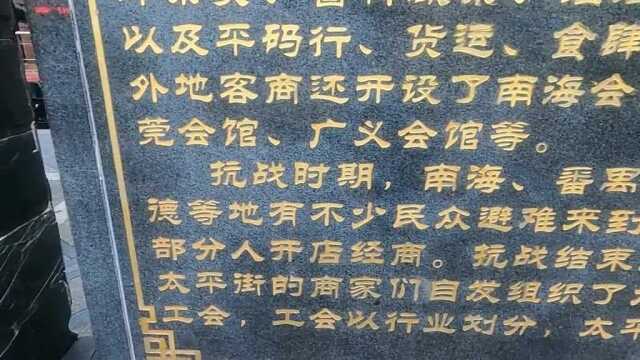 以及平码行、货运、食肆
外地客商还开设了南海会
莞会馆、广义会馆等。
抗战时期，南海、番禺
德等地有不少民众避难来到
部分人开店经商。抗战结束
太平街的商家们自发组织了
工会，工会以行业划分，太平